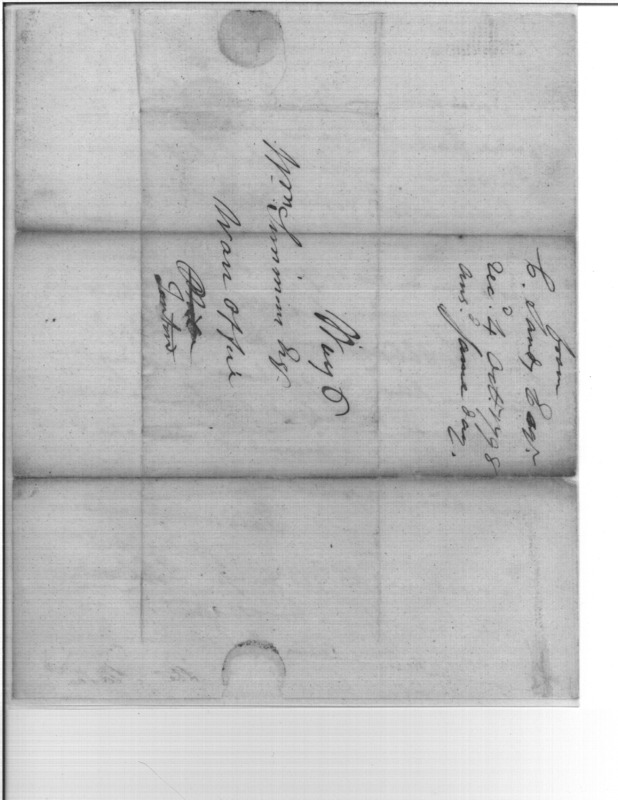 from
C. Sands Esqr.
rec.d 4 Oct 1798
ans.d Same day.
Wm Simmons Esqr
War Office
Trenton